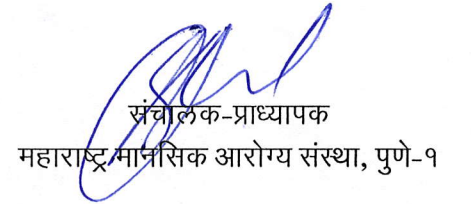 संचालक-प्राध्यापक
महाराष्ट्र मानसिक आरोग्य संस्था, पुणे-१